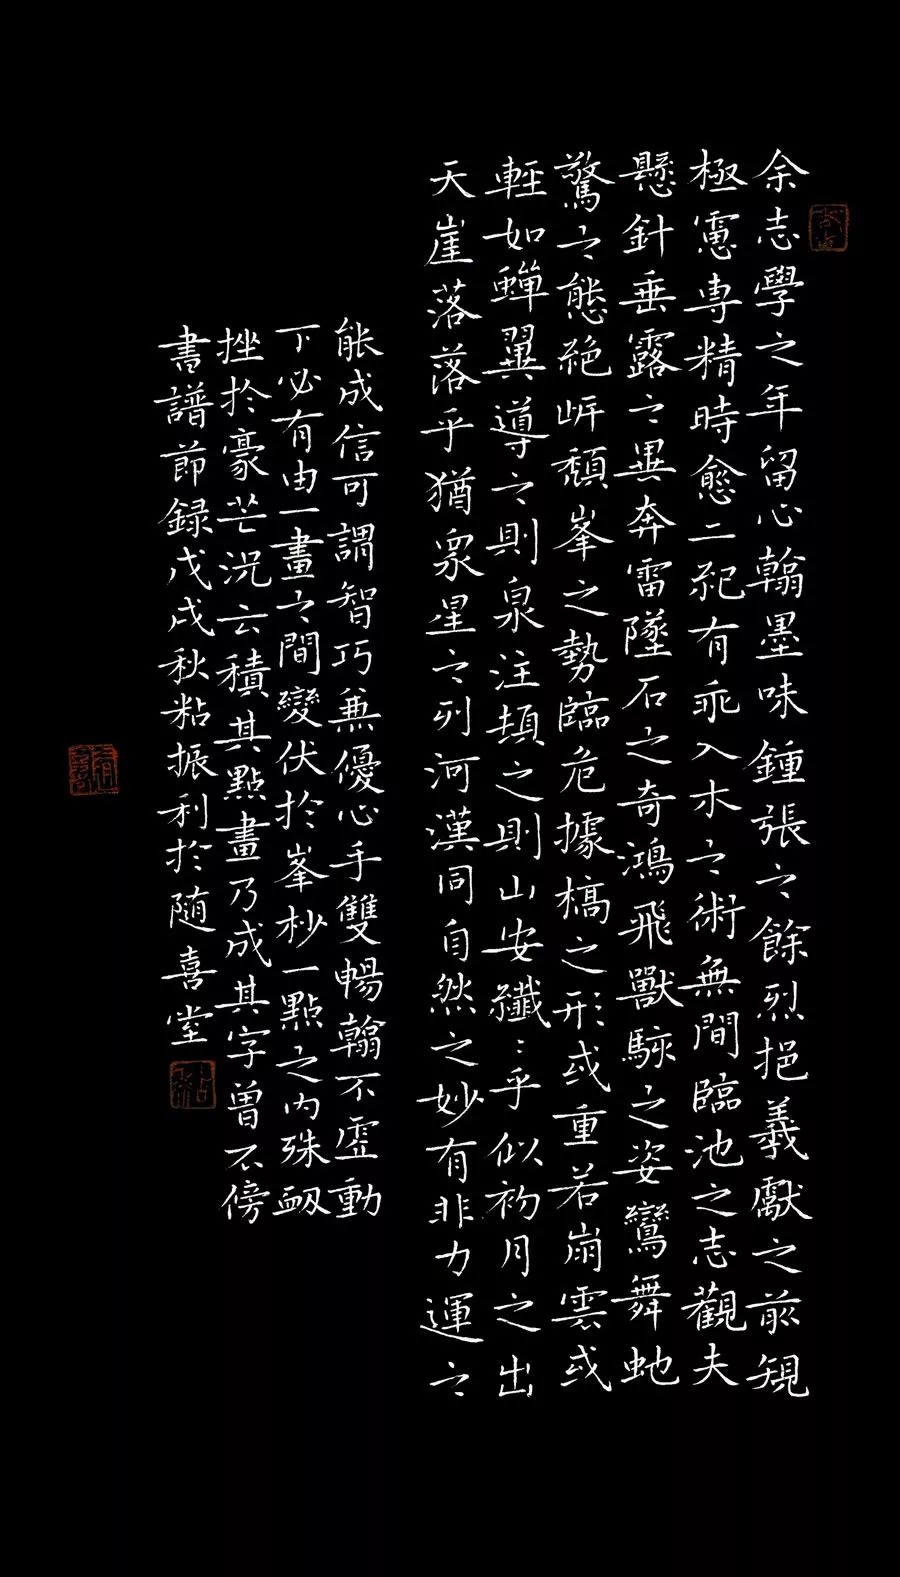 余志學之年留心翰墨味鍾張之餘烈挹羲獻之前規
極慮専精時愈二紀有乖入木之術無間臨池之志觀夫
懸針垂露之異奔雷墜石之奇鴻飛獸駭之姿鸞舞虵
驚之態絶岸頹峯之勢臨危據槁之形或重若崩雲或
輕如蟬翼導之則泉注頓之則山安纖〻乎似初月之出
天崖落落乎猶衆星之列河漢同自然之妙有非力運之
能成信可謂智巧兼優心手雙暢翰不虛動
下必有由一畫之間變伏於峯杪一點之內殊衂
挫於豪芒況云積其點畫乃成其字曾不傍
書譜節録戊戌秋粘振利於随喜堂